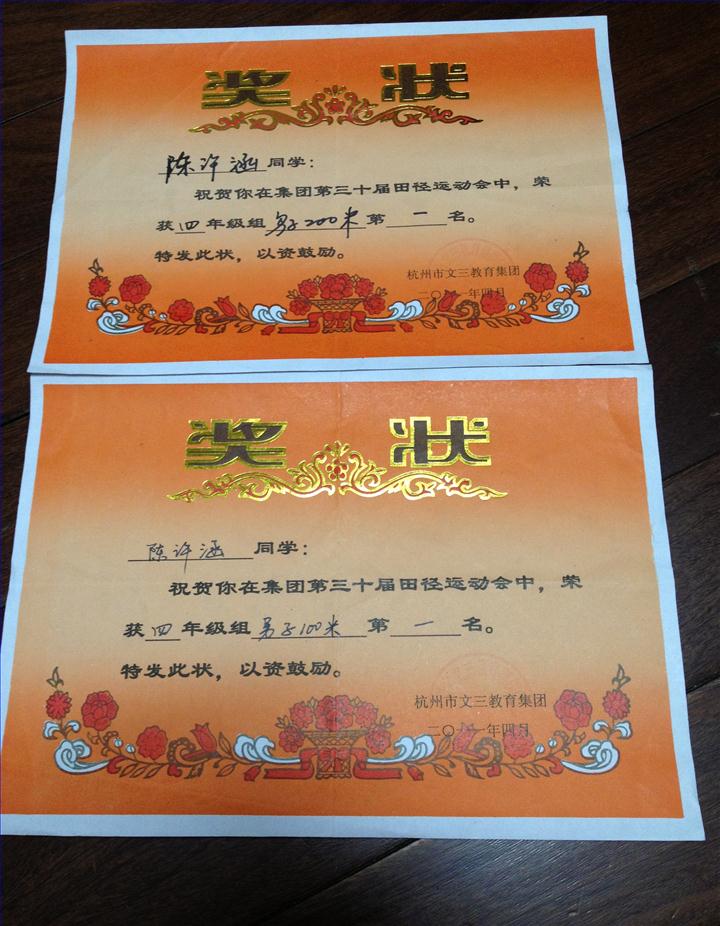 奖 状
陈许涵同学：
祝贺你在集团第三十届田径运动会中，荣
获四年级组男子200米第一名。
特发此状，以资鼓励。
杭州市文三教育集团
二〇一一年四月
奖 状
陈许涵同学：
祝贺你在集团第三十届田径运动会中，荣
获四年级组男子100米第一名。
特发此状，以资鼓励。
杭州市文三教育集团
二〇一一年四月